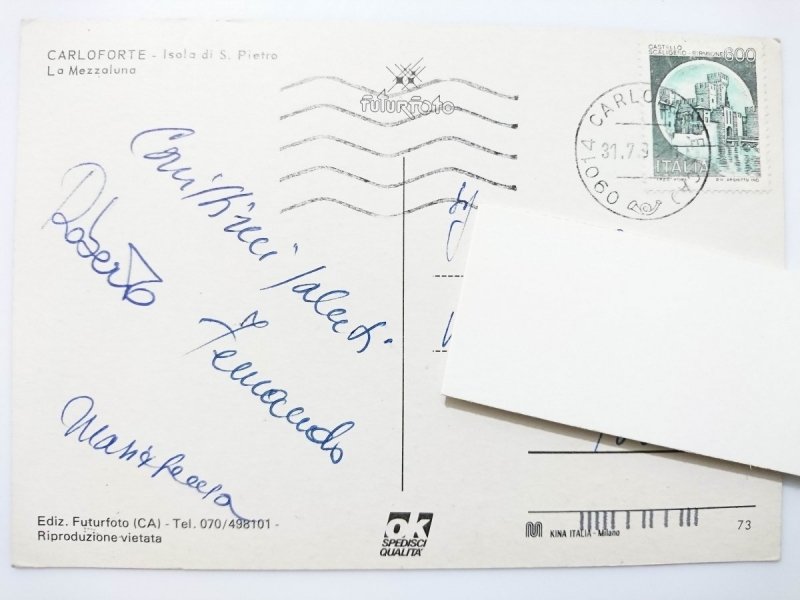 CARLOFORTE - Isola di S. Pietro
La Mezzaluna
futurfoto
CASTELLO
SCALIGERO - SIRMIONE
600
ITALIA
CARLOFORTE (CA)
31.7.9
09014
Cari saluti
Roberto
Fernando
Ediz. Futurfoto (CA) - Tel. 070/498101 -
Riproduzione vietata
ok
SPEDISCI
QUALITA'
KINA ITALIA - Milano
73